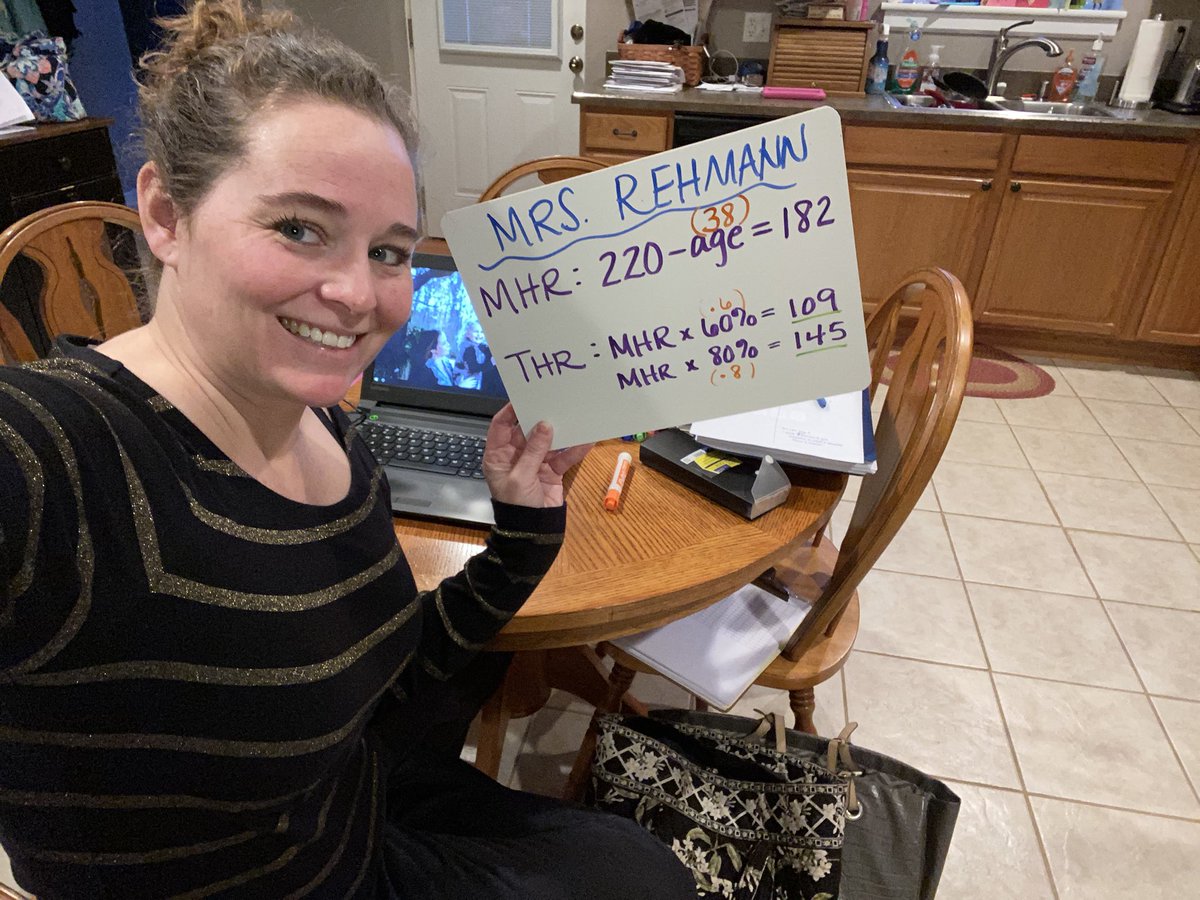 MRS. REHMANN
(38)
MHR: 220-age = 182
(.6)
THR: MHR x 60% = 109
MHR x 80% = 145
(.8)